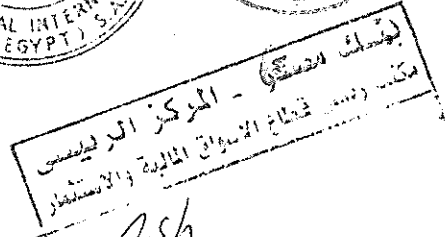 AL INTERN
EGYPT) S.A
بنك مصر - المركز الرئيسى
مكتب رئيس قطاع الاسواق المالية والاستثمار